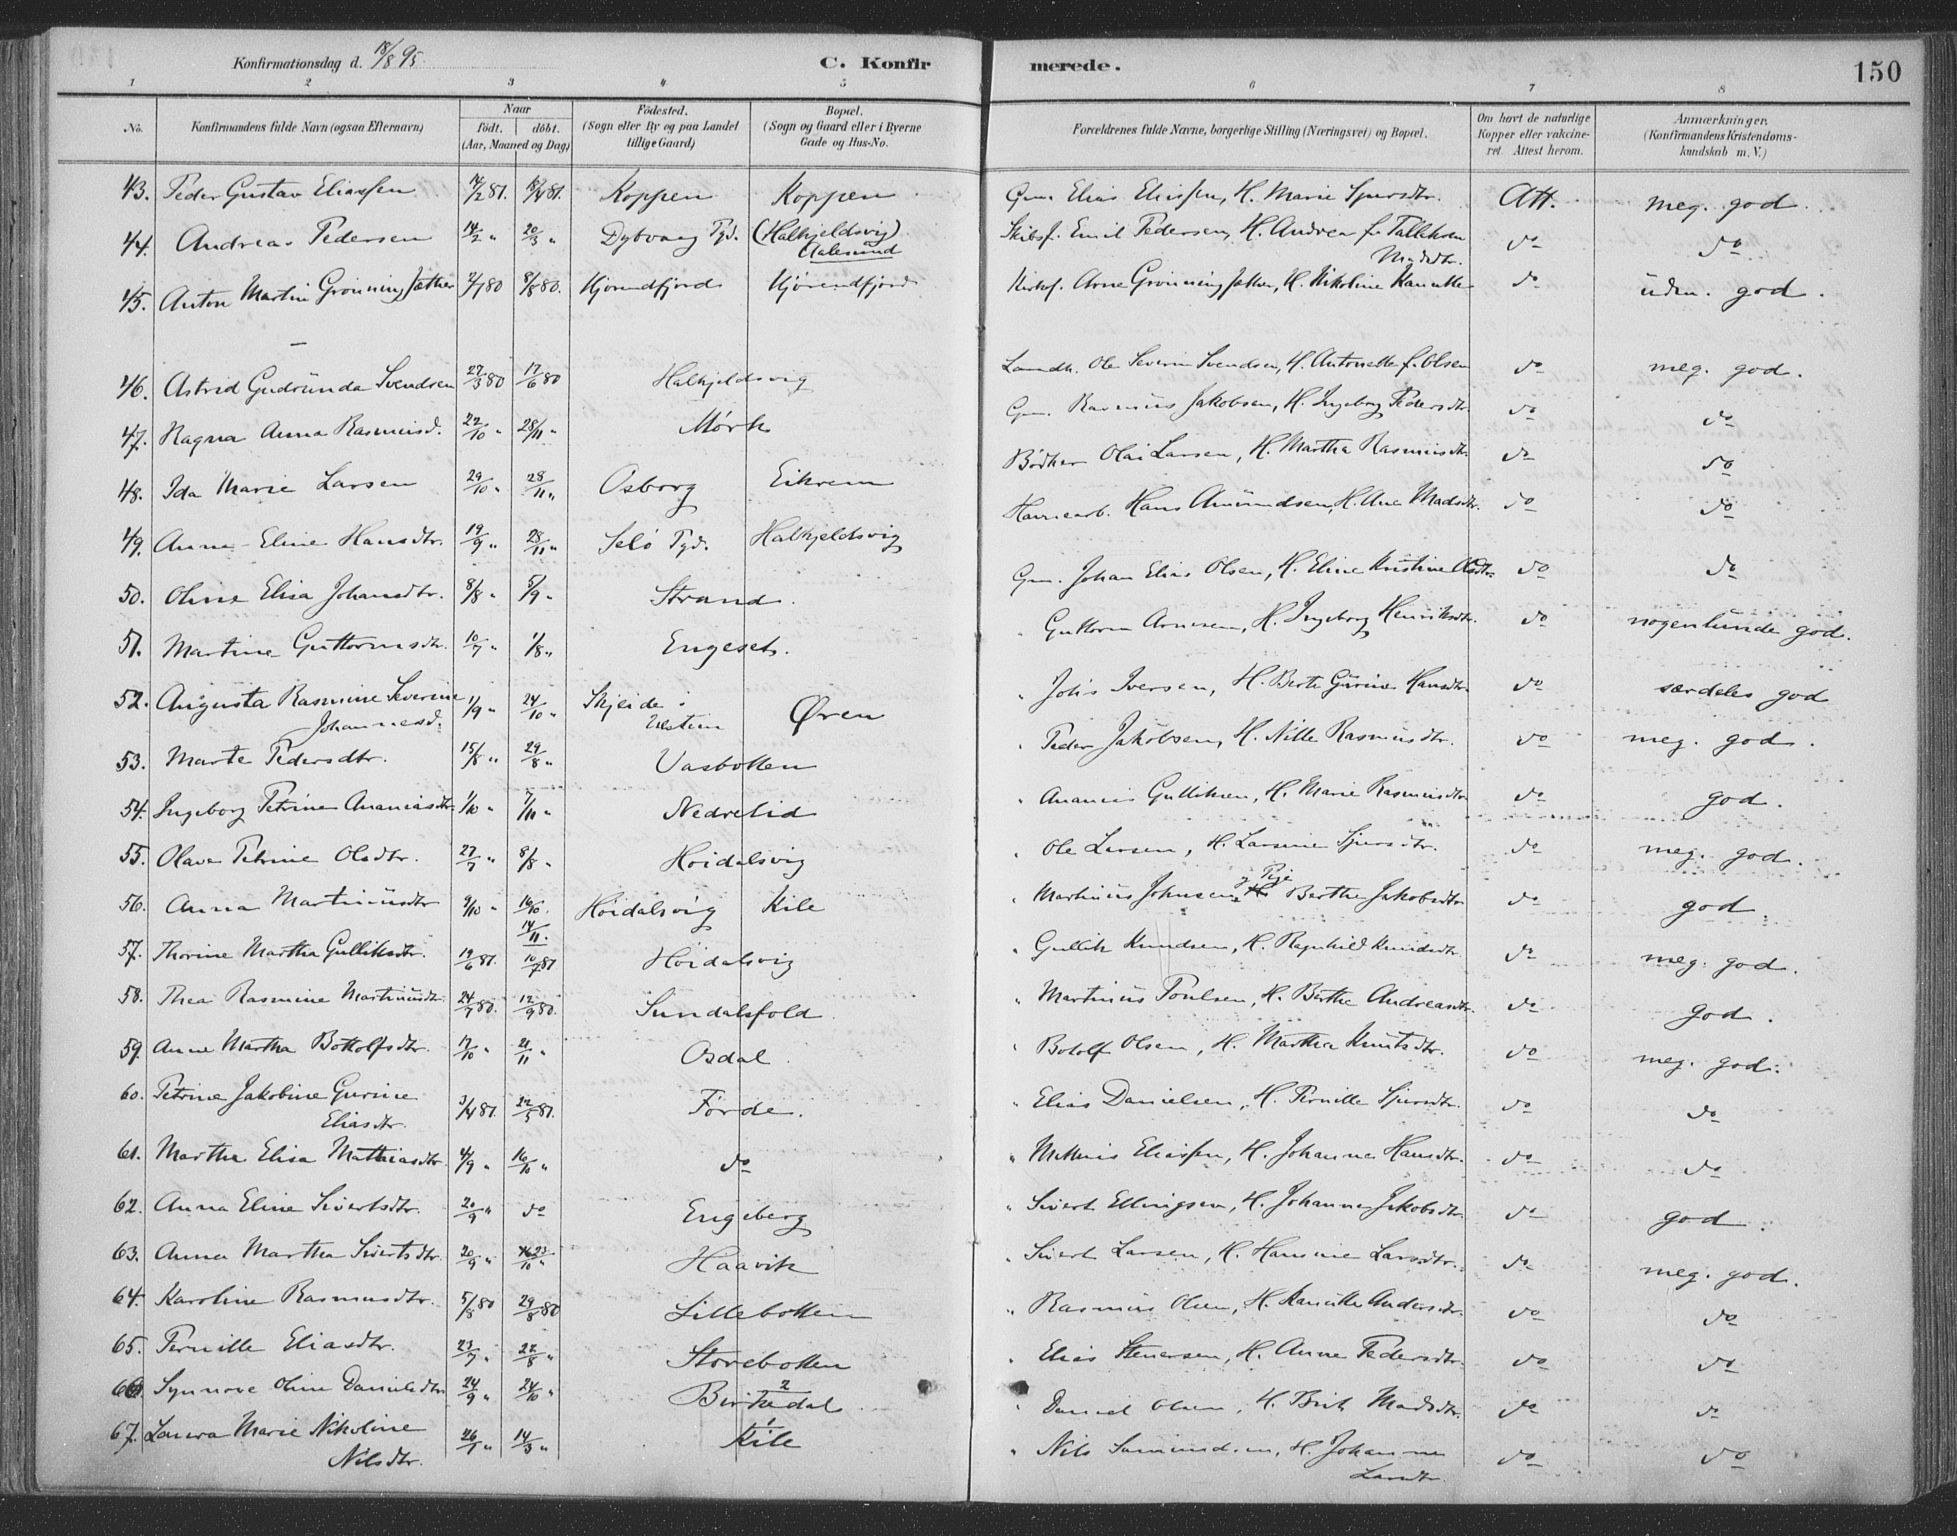 Konfirmationsdag d. 18/8 95. C. Konfir merede. 150
1 2 3 4 5 6 7 8
No. Konfirmandens fulde Navn (ogsaa Efternavn) Naar født. døbt. (Aar, Maaned og Dag) Fødested. (Sogn eller By og paa Landet tillige Gaard) Bopæl. (Sogn og Gaard eller i Byerne Gade og Hus-No. Forældrenes fulde Navne, borgerlige Stilling (Næringsvei) og Bopæl. Om havt de naturlige Kopper eller vakcineret. Attest herom. Anmærkninger. (Konfirmandens Kristendomskundskab m. V.)
43. Peder Gustav Eliassen 14/2 81. 18/4 81. Koppen Koppen Gm. Elias Eliassen, H. Marie Sjursdtr. Att. meg. god
44. Andreas Pedersen 14/2 " 20/3 " Dybvaag Pgd. (Halkjeldsvig) Aalesund Skibsf. Emil Pedersen, H. Andrea f. do do
45. Anton Martin Grønning Sæther 2/7 80 8/8 80. Hjørendfjord Hjørendfjord Arne Grønning Sæther, H. Nikoline do uden. god.
46. Astrid Gudrunda Svendsen 27/3 80 17/6 80 Halkjeldsvig Landh. Ole Severin Svendsen, H. Antonette f. Olsen do meg. god.
47. Ragna Anna Rasmusd. 22/10 " 28/11 " Mørk Gm. Rasmus Jakobsen, H. Ingeborg Pedersdtr. do do
48. Ida Marie Larsen 29/10 " 28/11 " Osborg Eikrem Bødker Olai Larsen, H. Martha Rasmusdtr. do do
49. Anne Eline Hansdtr. 19/9 " 28/11 " Selø Pgd. Halkjeldsvig Hans Amundsen, H. Ane Madsdtr. do do
50. Oline Elisa Johansdtr. 8/8 " 5/9 " Strand. Gm. Johan Elias Olsen, H. Eline Kristine Olsdtr. do do
51. Martine Guttormsdtr. 10/7 " 1/8 " Engeset. " Guttorm Arnesen, H. Ingeborg Henriksdtr. do nogenlunde god.
52. Augusta Rasmine Severine Johannesd. 1/9 " 24/10 " Skjeide i Ulstein Øren " Johs Iversen, H. Berte Gurine Hansdtr. do særdeles god
53. Marte Pedersdtr. 15/8 " 29/8 " Vasbotten " Peder Jakobsen, H. Nille Rasmusdtr. do meg. god.
54. Ingeborg Petrine Ananiasdtr. 1/10 " 7/11 " Nedrelid " Ananias Gulliksen, H. Marie Rasmusdtr. do god.
55. Olave Petrine Olsdtr. 27/7 " 8/8 " Høidalsvig " Ole Larsen, H. Larsine Sjursdtr. do meg. god.
56. Anna Martinusdtr 9/10 " 16/10. Høidalsvig Kile " Martinus Johnsen, g Pige Berthe Jakobsdtr. do god
57. Thorine Martha Gulliksdtr. 19/6 81. 14/11. 10/7 81 Høidalsvig " Gullik Knudsen, H. Ragnhild Knudsdtr. do meg. god.
58. Thea Rasmine Martinusdtr. 24/7 80. 12/9 80. Sundalsfold " Martinus Poulsen, H. Berthe Andreasdtr. do god.
59. Anne Martha Bottolfsdtr. 17/10 " 21/11 " Osdal " Botolf Olsen, H. Martha Knutsdtr. do meg. god.
60. Petrine Jakobine Gurine Eliasdtr. 3/4 81. 22/5 81. Førde. " Elias Danielsen, H. Pernille Sjursdtr. do do
61. Martha Elisa Mathiasdtr 4/9 " 16/10 " do " Mathias Eliassen, H. Johanne Hansdtr. do do
62. Anna Eline Sivertsdtr. 20/9 " do Engeberg " Sivert Ellingsen, H. Johanne Jakobsdtr. do god.
63. Anna Martha Sivertsdtr. 20/9 " 23/10 " Haavik " Sivert Larsen, H. Hansine Larsdtr. do meg. god.
64. Karoline Rasmusdtr. 5/8 80 29/8 80 Lillebotten " Rasmus Olsen, H. Andersdtr. do do
65. Pernille Eliasdtr. 23/7 " 22/8 " Storebotten " Elias Stenersen, H. Anne Pedersdtr. do do
66. Synnove Oline Danielsdtr 24/9 " 24/10 " Birkedal 2 " Daniel Olsen, H. Brit Madsdtr. do do
67. Laura Marie Nikoline Nilsdtr. 26/1 " 14/3 " Kile " Nils H. Johanne Larsdtr. do do